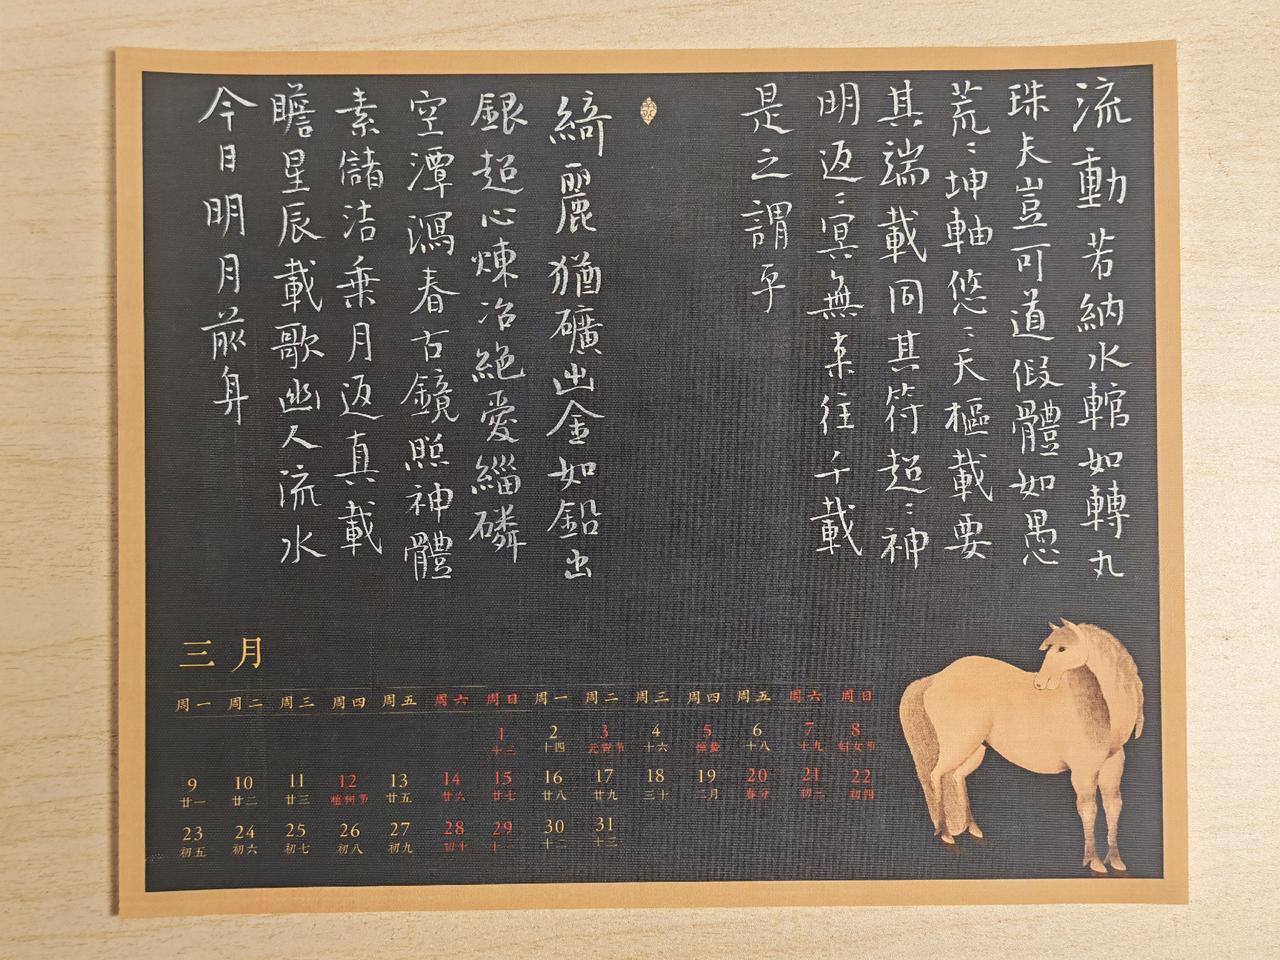 流動 若納水輨如轉丸
珠夫豈可道假體如愚
荒〻坤軸悠〻天樞載要
其端載同其符超〻神
明返〻冥無来往千載
是之謂乎
綺麗 猶礦出金如鉛出
銀超心煉冶絕愛緇磷
空潭瀉春古鏡照神體
素儲洁乘月返真載
瞻星辰載歌幽人流水
今日明月前身
三月
周一 周二 周三 周四 周五 周六 周日 周一 周二 周三 周四 周五 周六 周日
1 2 3 4 5 6 7 8
十三 十四 元宵节 十六 惊蛰 十八 十九 妇女节
9 10 11 12 13 14 15 16 17 18 19 20 21 22
廿一 廿二 廿三 植树节 廿五 廿六 廿七 廿八 廿九 三十 二月 春分 初三 初四
23 24 25 26 27 28 29 30 31
初五 初六 初七 初八 初九 初十 十一 十二 十三